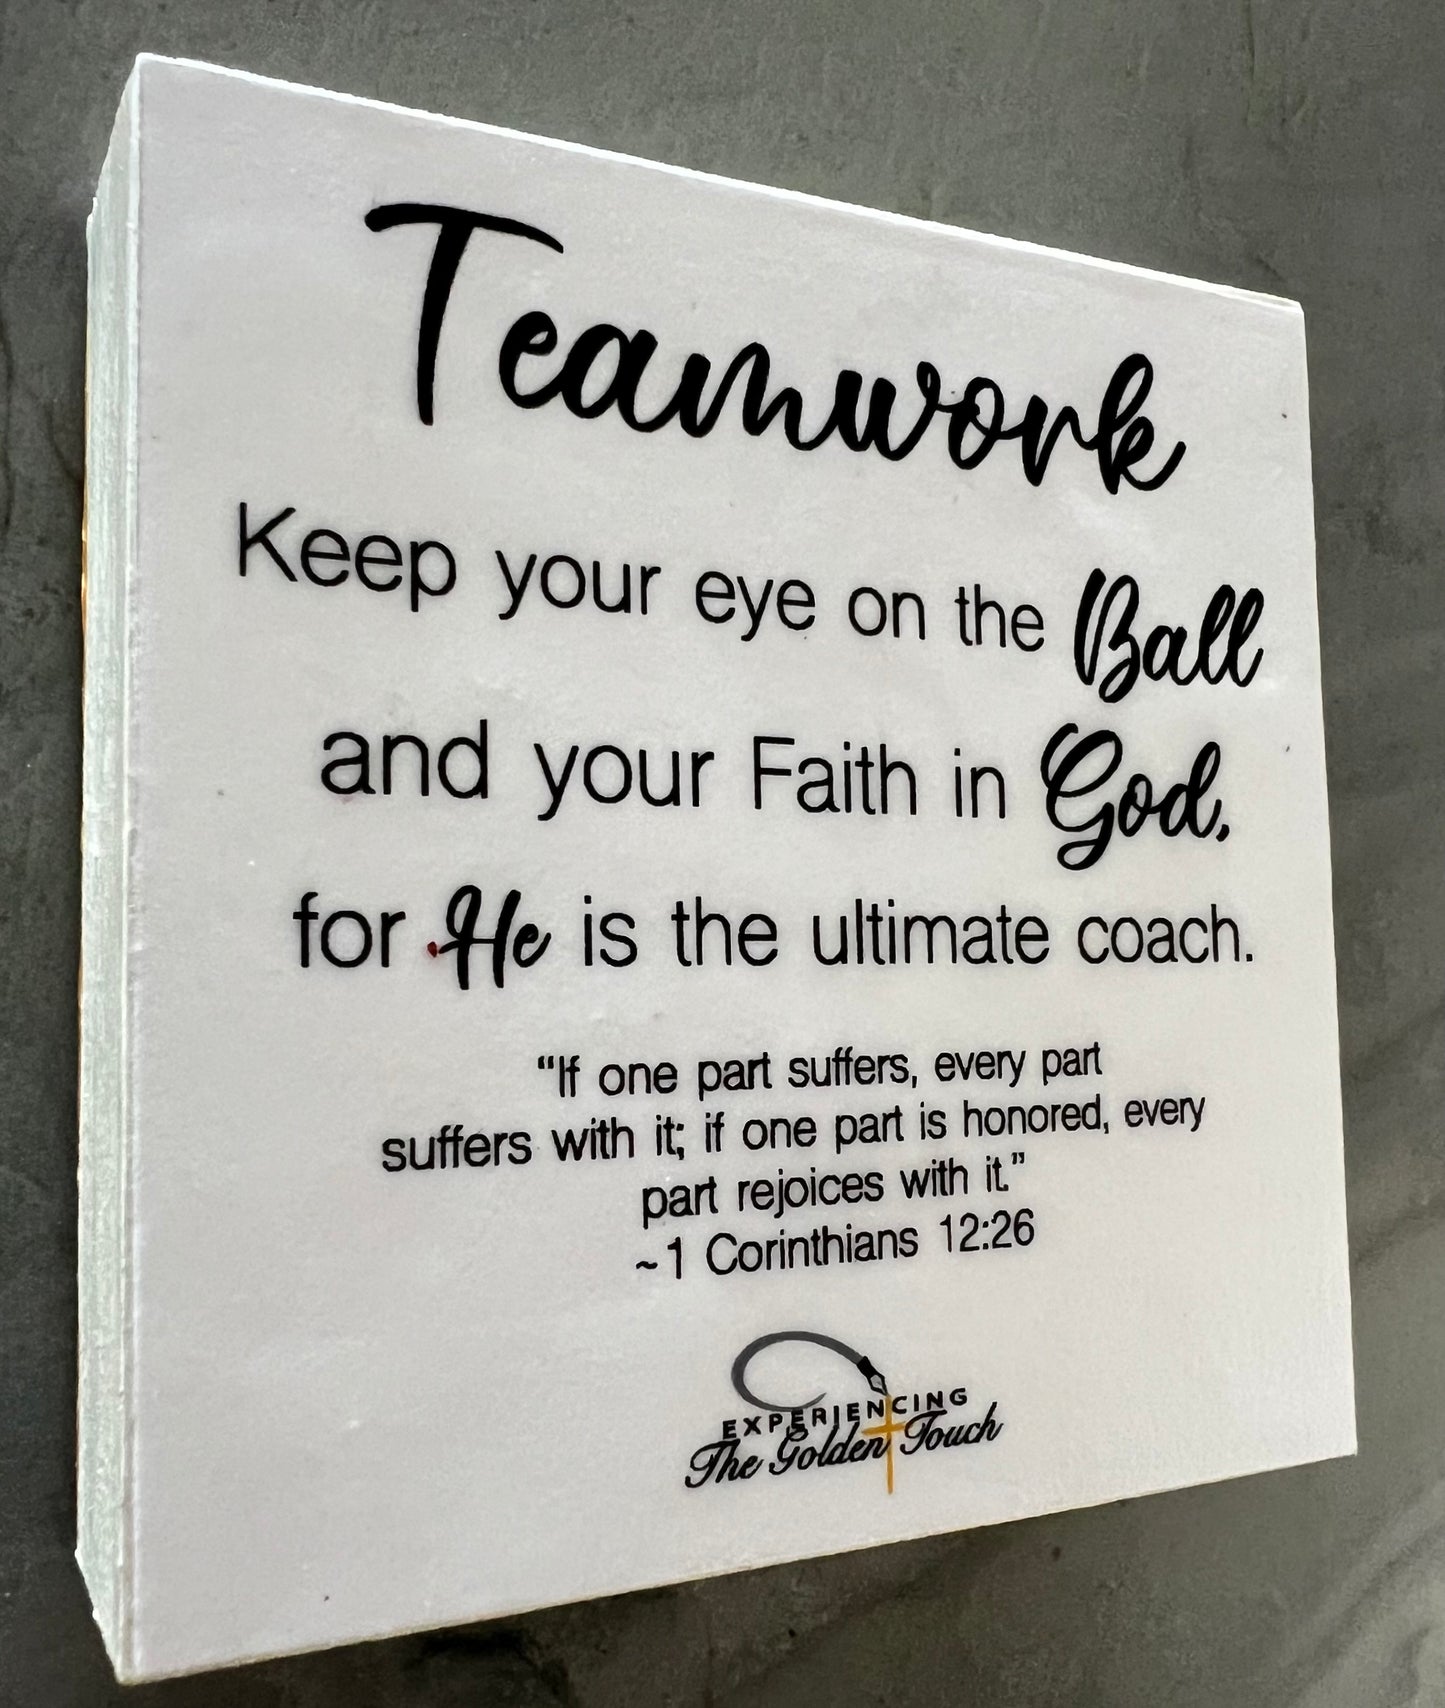 Teamwork
Keep your eye on the Ball
and your Faith in God,
for He is the ultimate coach.
“If one part suffers, every part
suffers with it; if one part is honored, every
part rejoices with it.”
~1 Corinthians 12:26
EXPERIENCING
The Golden Touch